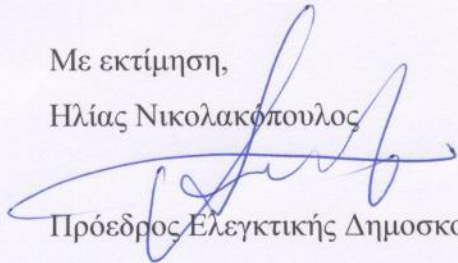 Με εκτίμηση,
Ηλίας Νικολακόπουλος
Πρόεδρος Ελεγκτικής Δημοσκο